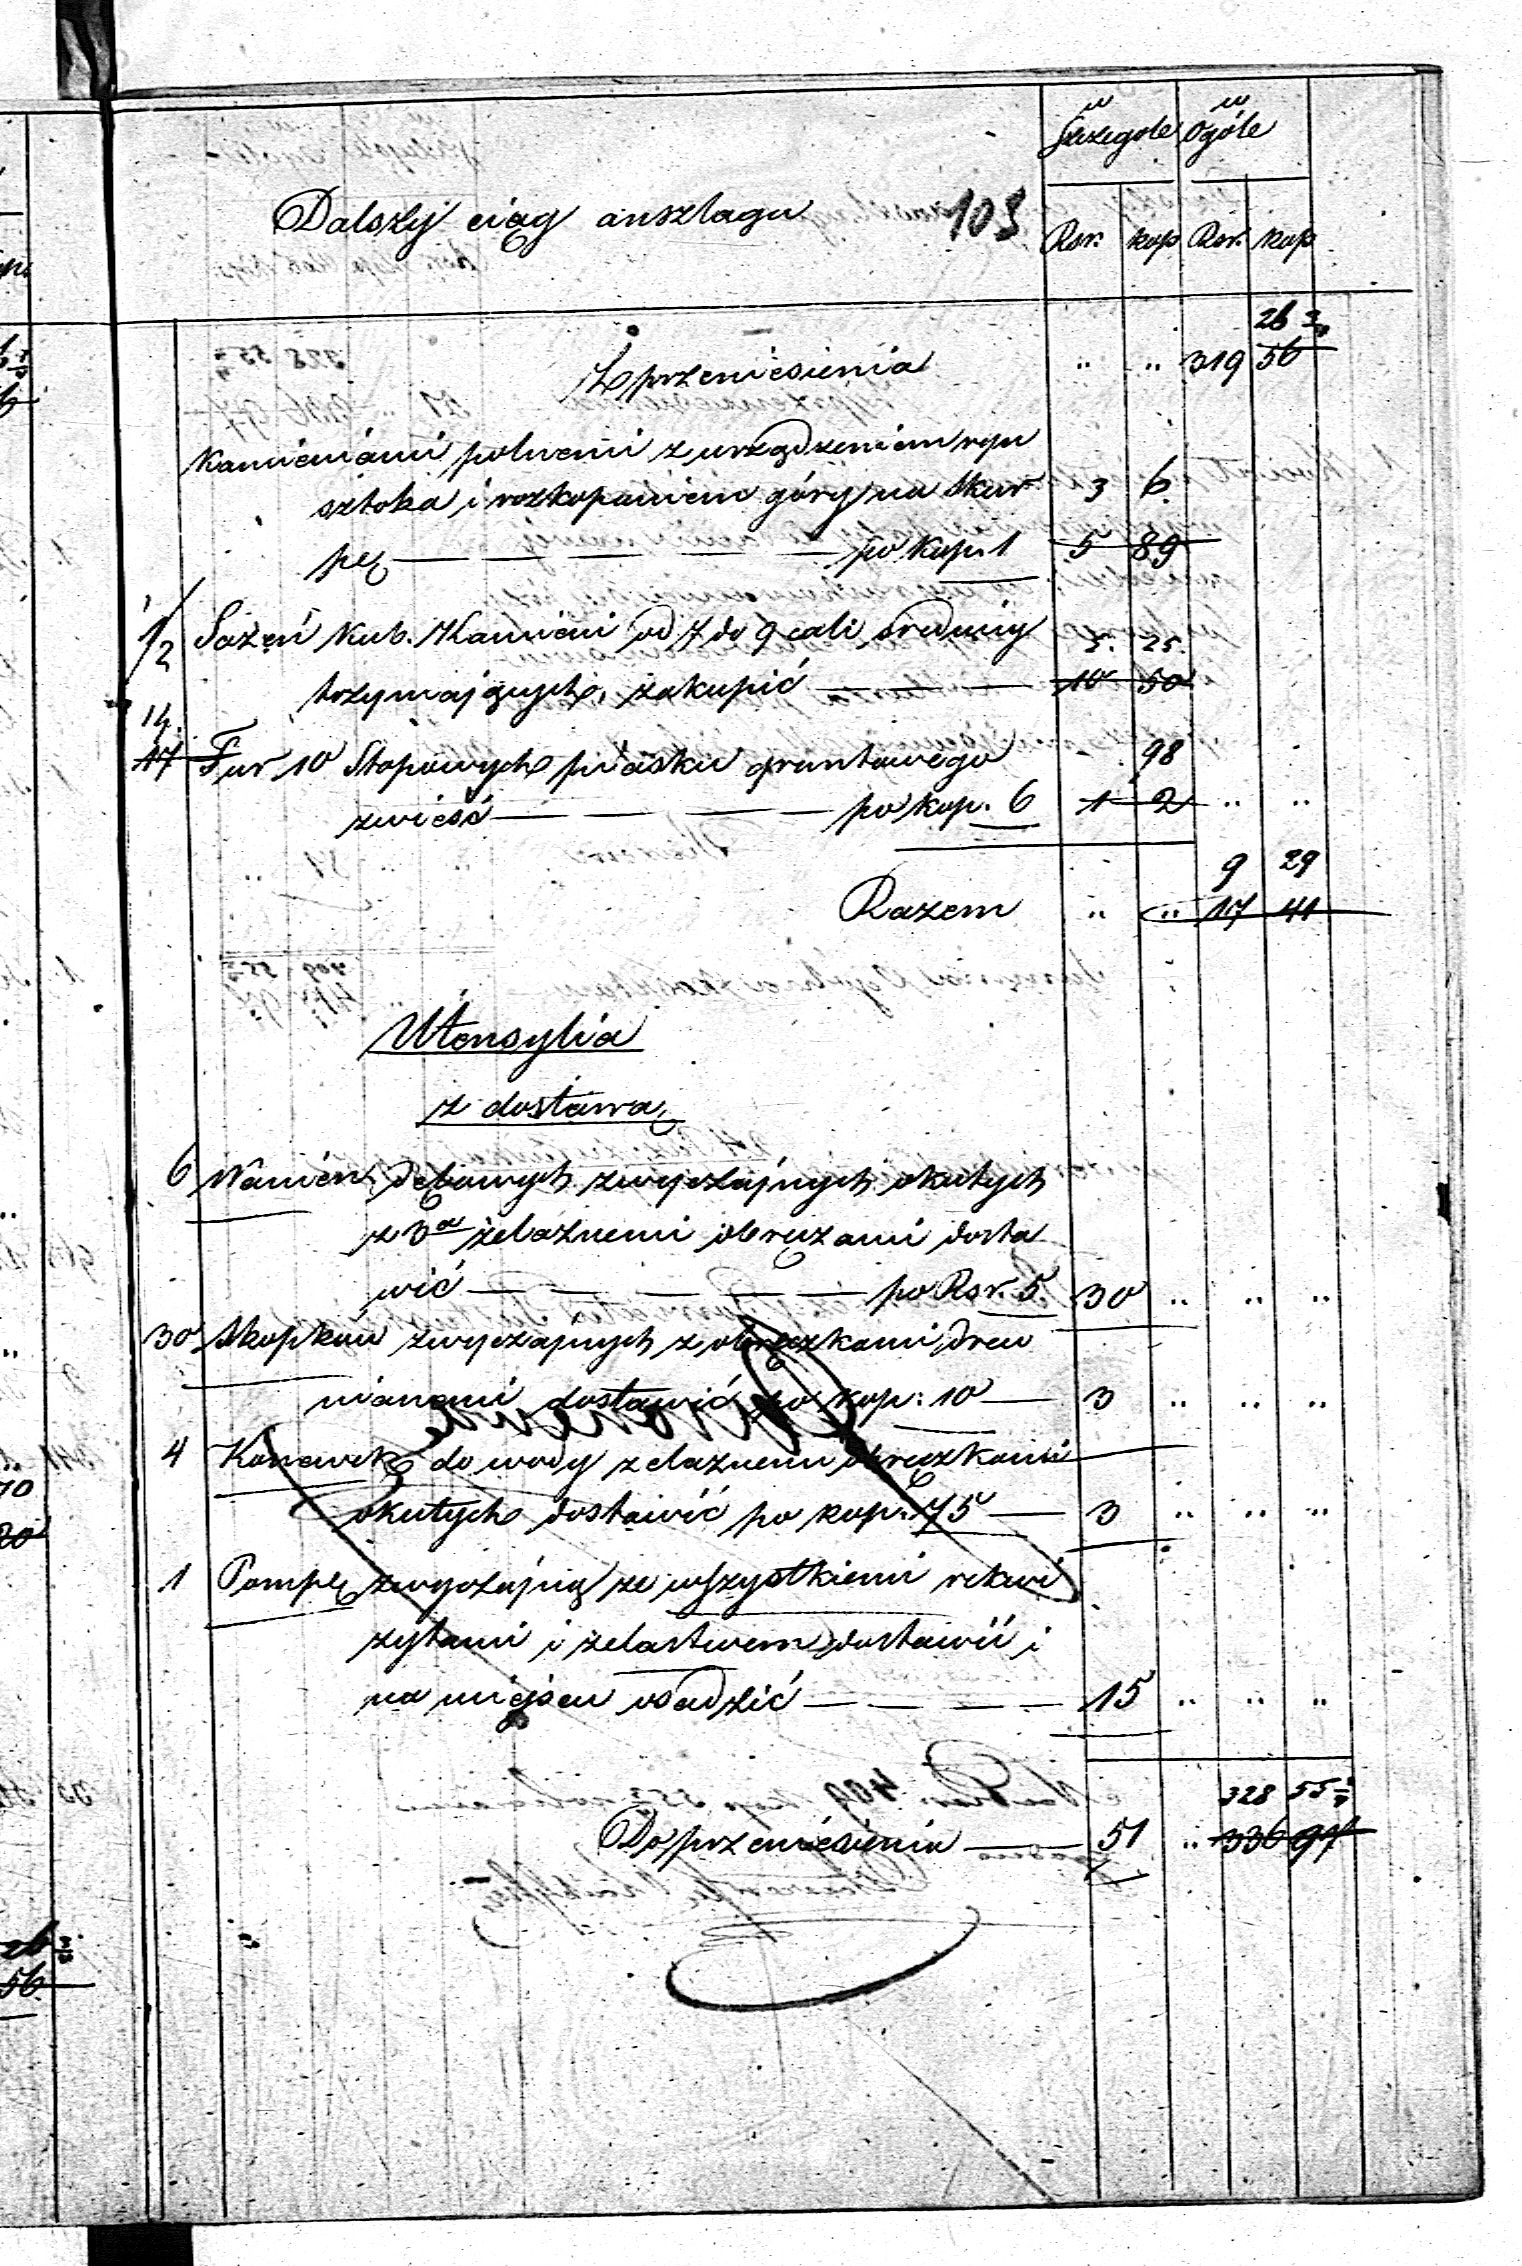 w Szczególe w Ogóle
Dalszy ciąg anszlagu 103 Rsr. kop Rsr. kop
26 3/4
Z przeniesienia " " 319 56
Kamieniami polnemi z urządzeniem ryn
sztoka i rozkopaniem góry na skar 3 6.
pę — — — — po kop. 1 5 89
1/2 Sążeń Kub. Kamieni od 7 do 9 cali srednicy 5. 25.
trzymających, zakupić — — — 10 50
14.
17 Fur 10 Stopowych piasku gruntowego - 98
zwieść — — — — po kop. 6 1 2 " "
9 29
Razem " " 17 41
Utensylia
z dostawą
6 Wanien dębowych zwyczajnych okutych
z 3a żelaznemi obręczami dosta
wić — — — — po Rsr. 5. 30 " " "
30 Skopków zwyczajnych z obrączkami drew
nianemi dostawić po kop: 10 — 3 " " "
4 Konewek do wody zelaznemi obręczkami
okutych dostawić po kop: 75 — 3 " " "
1 Pompę zwyczajną ze wszystkiemi rekwi
zytami i żelastwem dostawić i
na miejscu osadzić — — — — 15 " " "
328 55 3/4
Do przeniesienia — 51 " 336 97